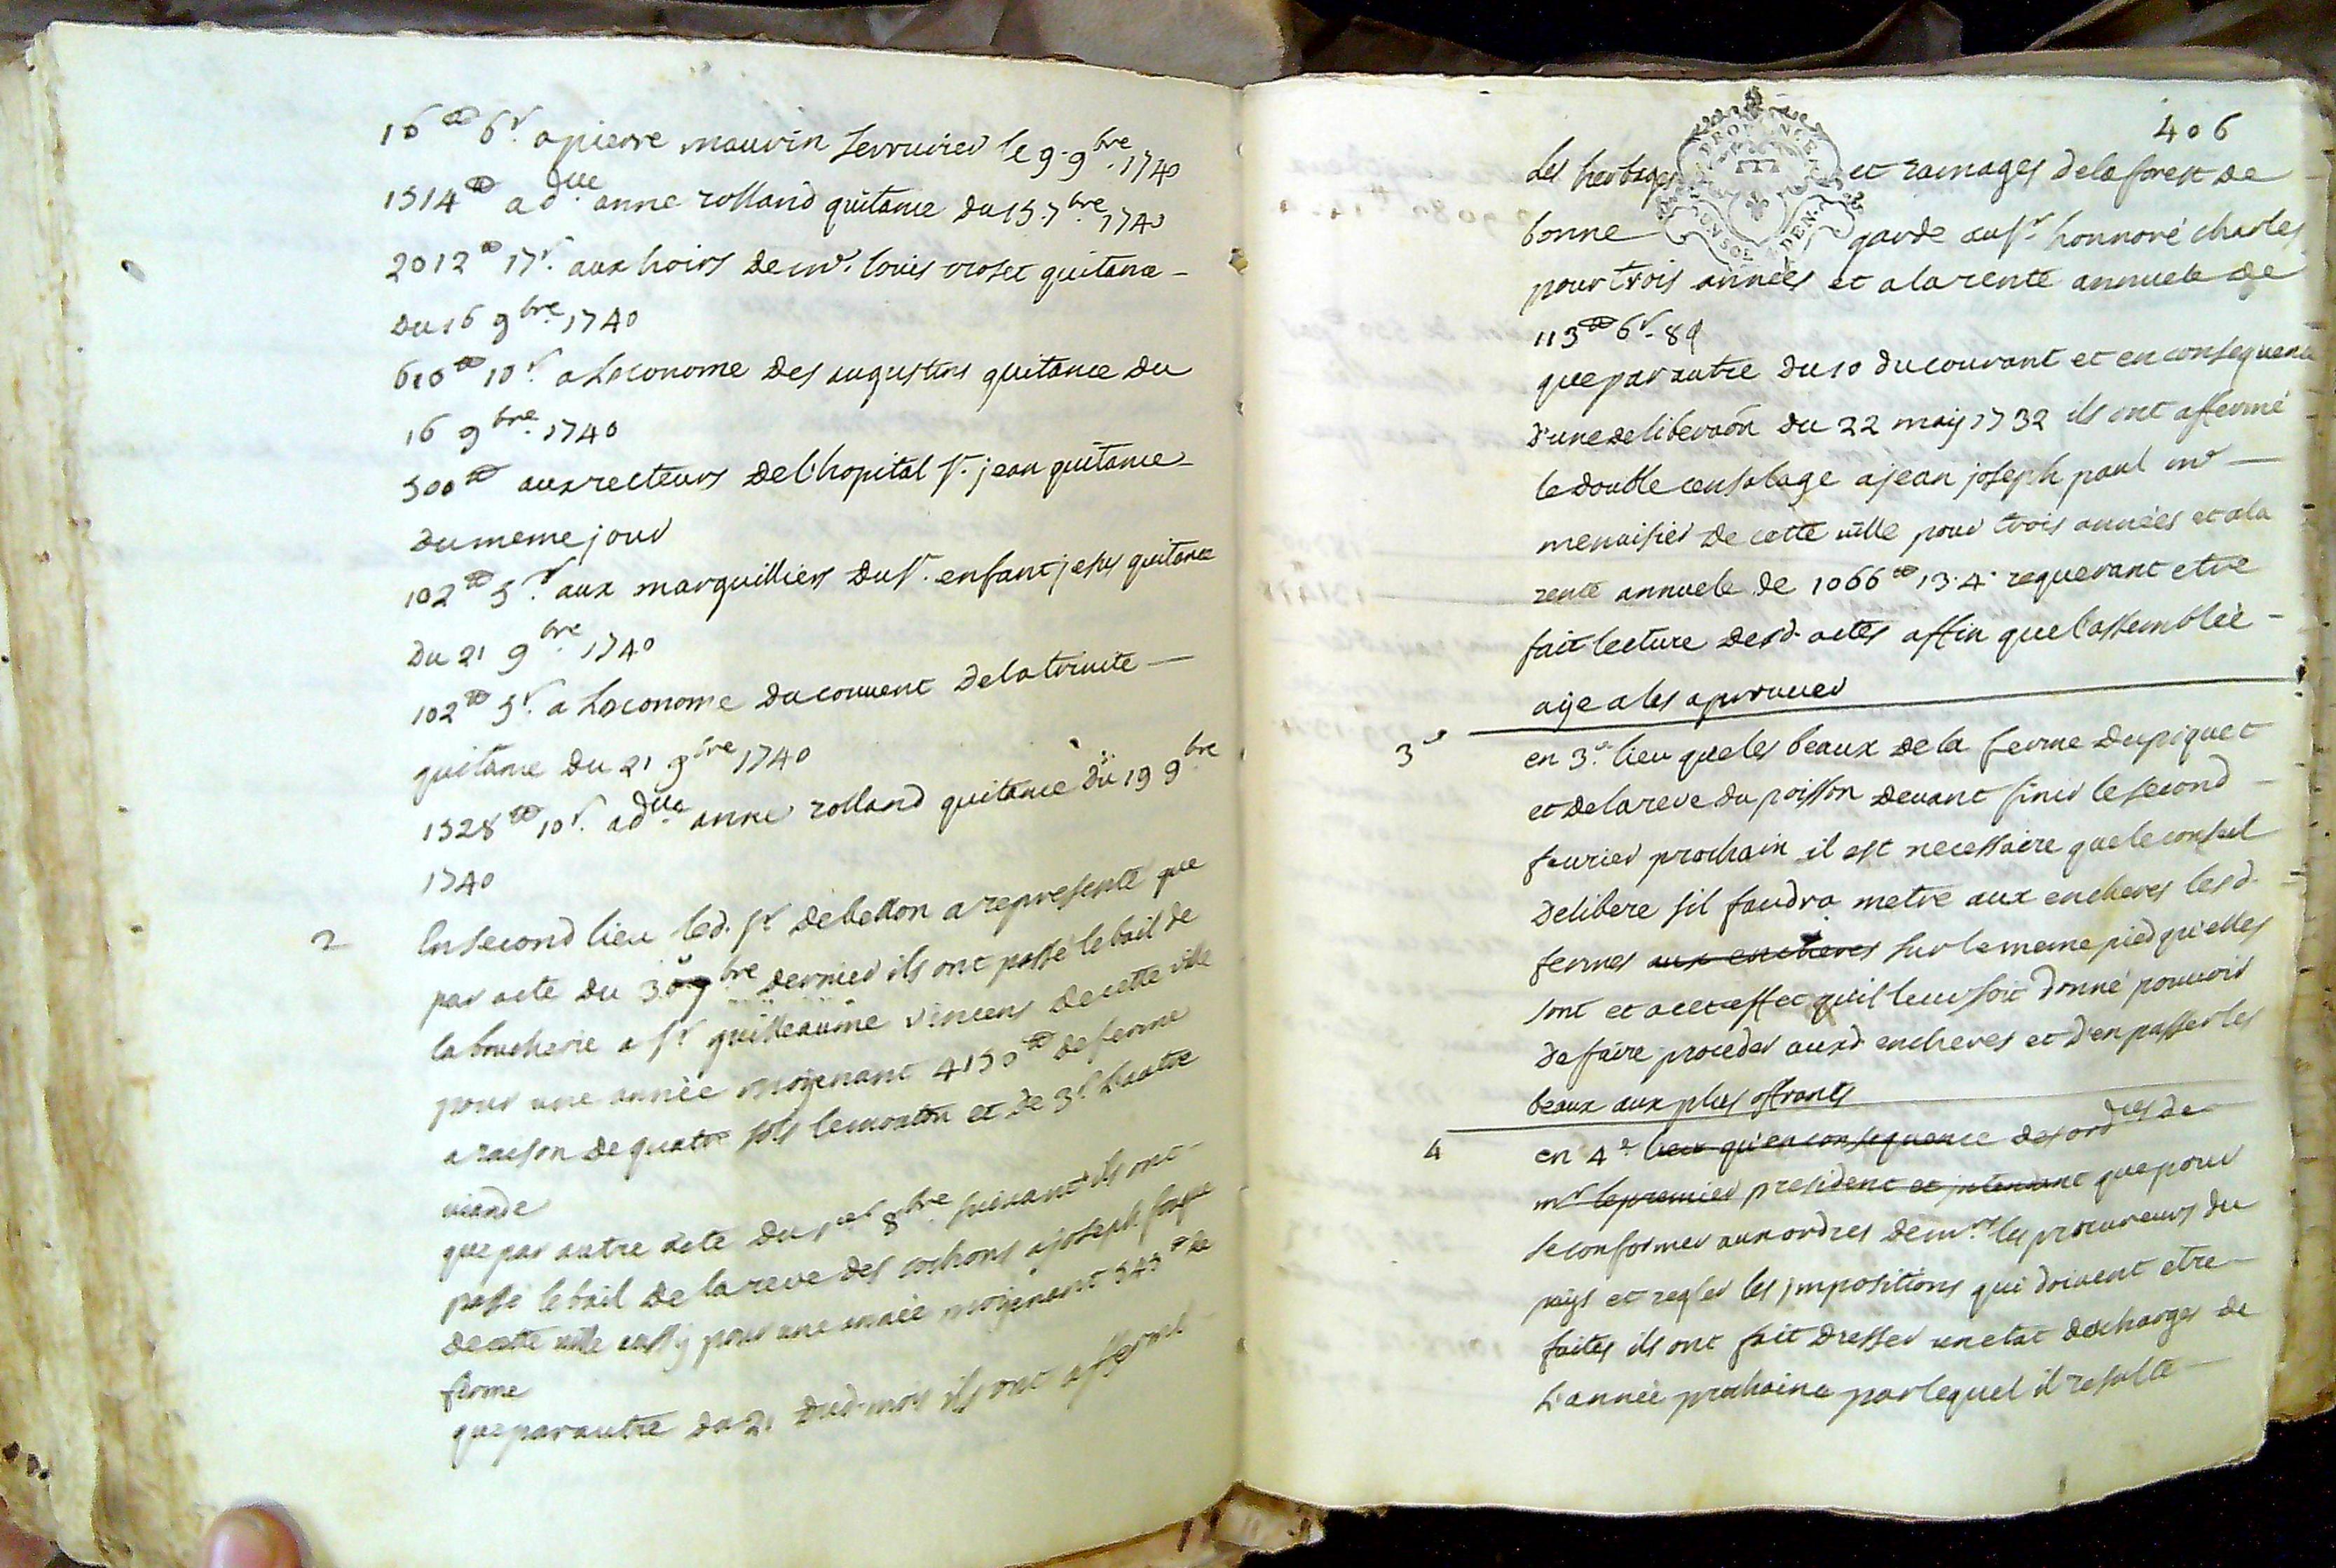 16 ᵗᵗ 6 s. a pierre mauvin serrurier le 9. 9bre. 1740
1514 ᵗᵗ a dlle anne rolland quitance du 15. 7bre. 1740
2012 ᵗᵗ 17 s. aux hoirs de mr. louis quitance -
du 16 9bre. 1740
610 ᵗᵗ 10 s. a Loeconome des augustins quitance du
16 9bre. 1740
500 ᵗᵗ aux recteurs de l'hopital st. jean quitance -
du meme jour
102 ᵗᵗ 5 s. aux marguilliers du st. enfant jesus quitance
du 21 9bre. 1740
102 ᵗᵗ 5 s. a Loeconome du couvent de la trinité —
quitance du 21 9bre 1740
1528 ᵗᵗ 10 s. a dlle anne rolland quitance du 19 9bre
1740
2 En second lieu led. sr debellon a representé que
par acte du 30 7bre dernier ils ont passé le bail de
la boucherie a sr guilleaume vincens de cette ville
pour une année moyenant 4150 ᵗᵗ de ferme
a raison de quatre sols le mouton et de 3 s. Lautre
viande
que par autre acte du 1er 8bre. suivant ils ont
passé le bail de la reve des cochons a joseph
de cette ville aussy pour une année moyenant 545 ᵗᵗ de
ferme
que par autre du 21 dud. mois ils ont affermé
406
Les herbages et ramages de la forest de
bonne garde au sr. honnoré charles
pour trois années et a la rente annuele de
113 ᵗᵗ 6 s. 8 d
que par autre du 10 du courant et en consequence
d'une deliberaôn du 22 may 1732 ils ont affermé
le double censalage a jean joseph paul mr —
menuisier de cette ville pour trois années et a la
rente annuele de 1066 ᵗᵗ 13. 4. requerant etre
fait lecture desd. actes affin que l'assemblée -
aye a les aprouver
3e en 3e. lieu que les beaux de la ferme du piquet
et de la reve du poisson devant finir le second -
fevrier prochain il est necessaire que le conseil
delibere sil faudra metre aux encheres lesd.
fermes aux encheres sur le meme pied qu'elles
sont et a cet effet qu'il leur soit donné pouvoir
de faire proceder auxd. encheres et d'en passer les
beaux aux plus offrants
4 en 4e lieu qu'en consequence des ordres de
mr le premier president et intendant que pour
se conformer aux ordres de mrs. les procureurs du
pays et regler les impositions qui doivent etre -
faites ils ont fait dresser un etat descharges de
L'année prochaine par lequel il resulte -